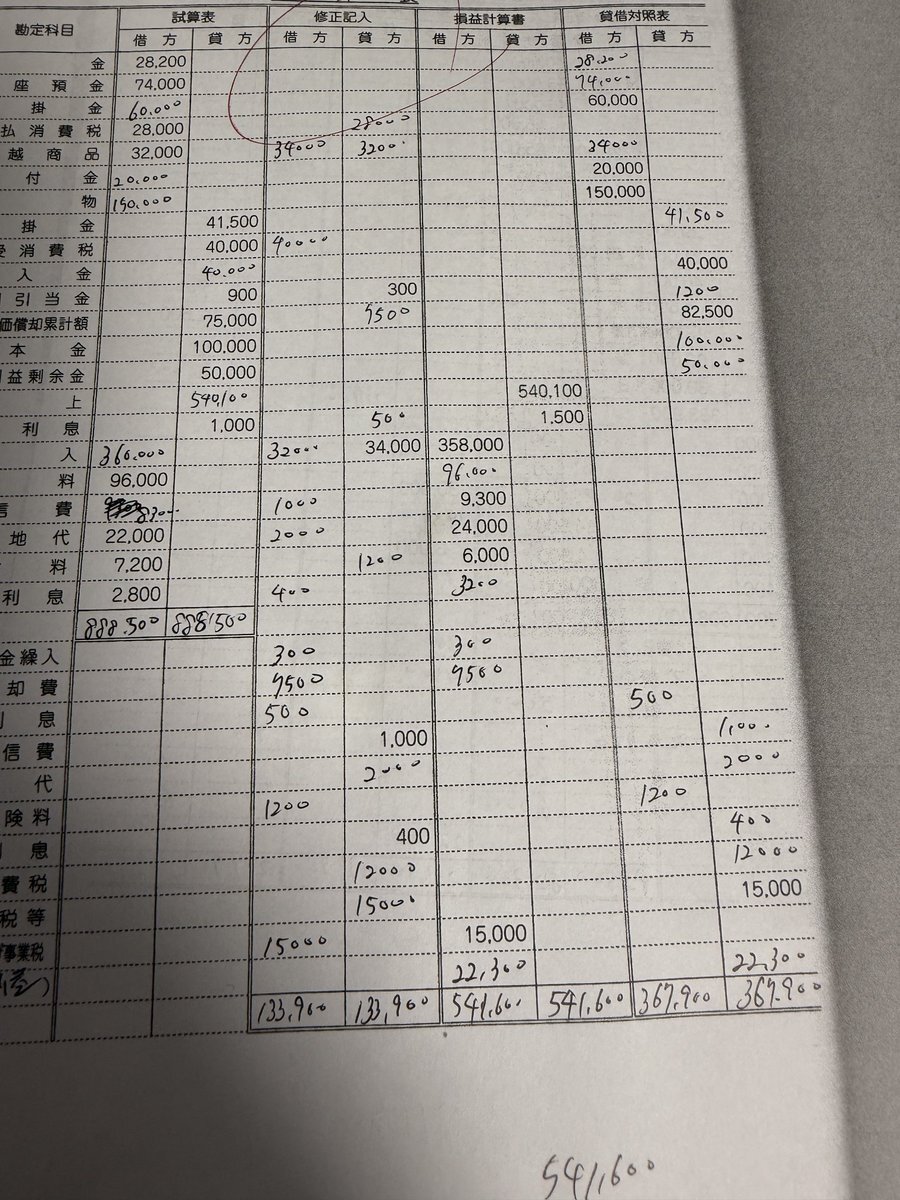 表
勘定科目 試算表 修正記入 損益計算書 貸借対照表
借方 貸方 借方 貸方 借方 貸方 借方 貸方
金 28,200 28,200
座預金 74,000 74,000
掛金 60,000 60,000
払消費税 28,000 28000
越商品 32,000 34000 3200 34000
付金 20,000 20,000
物 150,000 150,000
掛金 41,500 41,500
受消費税 40,000 40000
入金 40,000 40,000
引当金 900 300 1200
価償却累計額 75,000 7500 82,500
本金 100,000 100,000
益剰余金 50,000 50,000
上 540,100 540,100
利息 1,000 500 1,500
入 360,000 32000 34,000 358,000
料 96,000 96,000
信費 8300 1000 9,300
地代 22,000 2000 24,000
料 7,200 1200 6,000
利息 2,800 400 3200
888.500 888,500
金繰入 300 300
却費 7500 7500
利息 500 500
信費 1,000 1,000
代 2000 2000
険料 1200 1200
息 400 400
費税 12000 12000
税等 15000 15,000
事業税 15000 15,000
22,300 22,300
133,900 133,900 541,600 541,600 367,900 367,900
541,600